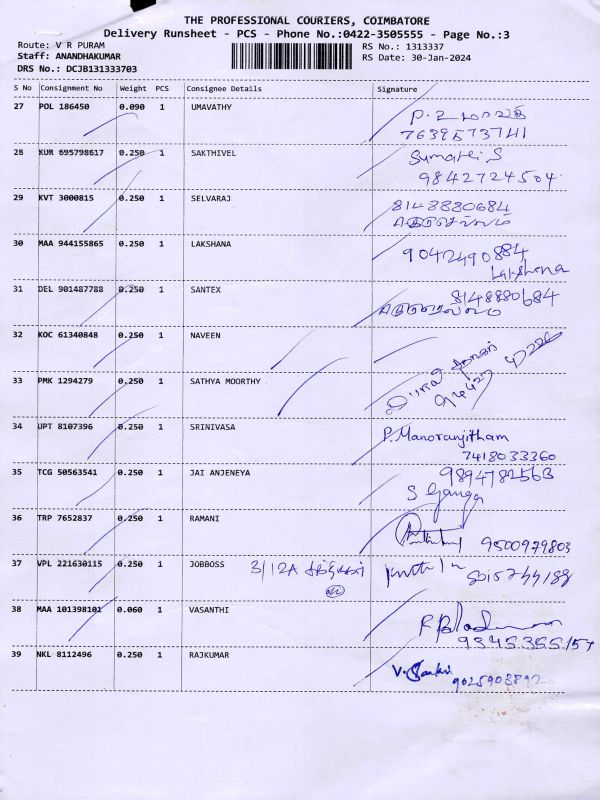 THE PROFESSIONAL COURIERS, COIMBATORE
Delivery Runsheet - PCS - Phone No.:0422-3505555 - Page No.:3
Route: V R PURAM
Staff: ANANDHAKUMAR
DRS No.: DCJB131333703
RS No.: 1313337
RS Date: 30-Jan-2024
S No Consignment No Weight PCS Consignee Details Signature
27 POL 186450 0.090 1 UMAVATHY
7639573741
28 KUR 695798617 0.250 1 SAKTHIVEL Sumathi S
9842724504
29 KVT 3000815 0.250 1 SELVARAJ 8148880684
30 MAA 944155865 0.250 1 LAKSHANA 9042490884
Lakshena
31 DEL 901487788 0.250 1 SANTEX 8148880684
32 KOC 61340848 0.250 1 NAVEEN
33 PMK 1294279 0.250 1 SATHYA MOORTHY
34 UPT 8107396 0.250 1 SRINIVASA P. Manoranjitham
7418033360
35 TCG 50563541 0.250 1 JAI ANJENEYA 9894782563
S Ganga
36 TRP 7652837 0.250 1 RAMANI 9500979803
37 VPL 221630115 0.250 1 JOBBOSS 3/12A
38 MAA 101398101 0.060 1 VASANTHI
9345355157
39 NKL 8112496 0.250 1 RAJKUMAR
9025903892